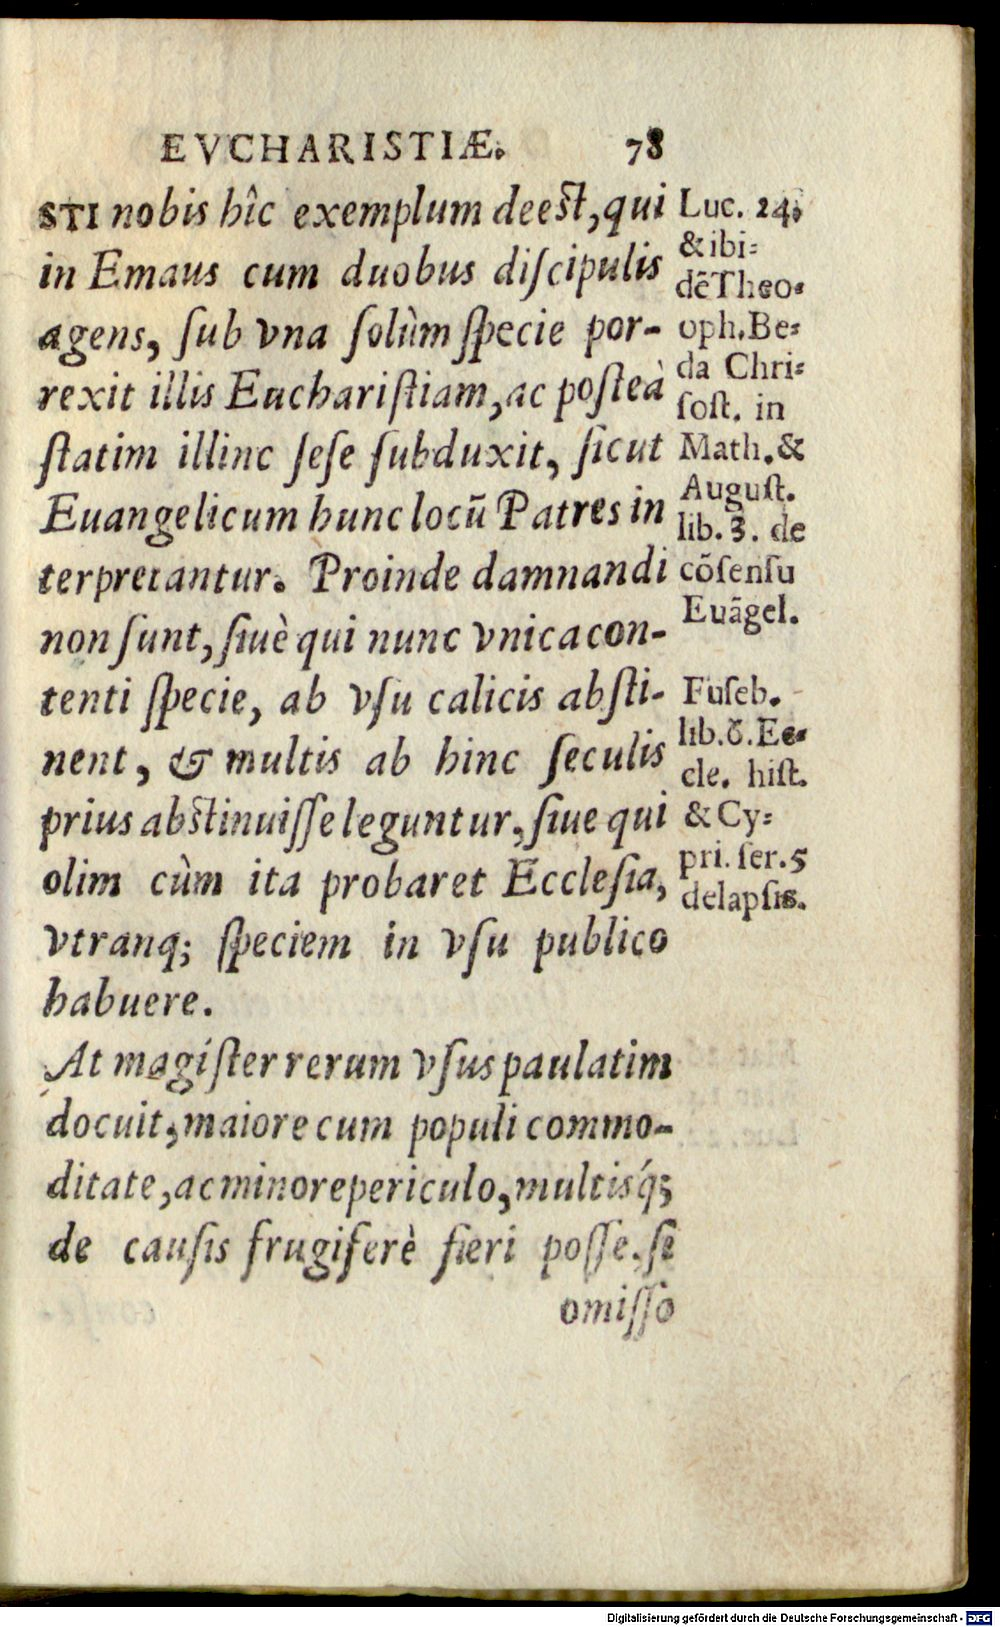 EVCHARISTIÆ. 78
STI nobis hîc exemplum deest, qui
in Emaus cum duobus diſcipulis
agens, ſub vna ſolùm ſpecie por-
rexit illis Euchariſtiam, ac poſteà
ſtatim illinc ſeſe ſubduxit, ſicut
Euangelicum hunc locũ Patres in
terpretantur. Proinde damnandi
non ſunt, ſiuè qui nunc vnica con-
tenti ſpecie, ab vſu calicis abſti-
nent, & multis ab hinc ſeculis
prius abstinuiſſe leguntur, ſiue qui
olim cùm ita probaret Eccleſia,
vtranq; ſpeciem in vſu publico
habuere.
At magiſter rerum vſus paulatim
docuit, maiore cum populi commo-
ditate, ac minore periculo, multisq́;
de cauſis frugiferè fieri poſſe, ſi
omiſſo
Luc. 24.
& ibi-
dẽ Theo-
oph. Be-
da Chri-
ſoſt. in
Math. &
Auguſt.
lib. 3. de
cõſenſu
Euãgel.
Euſeb.
lib. 6. Ec-
cle. hiſt.
& Cy-
pri. ſer. 5
de lapſis.
Digitalisierung gefördert durch die Deutsche Forschungsgemeinschaft - DFG